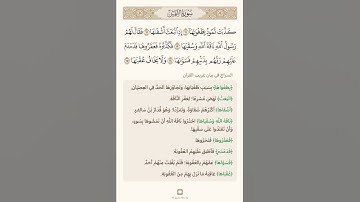 سورة الشمس
كَذَّبَتْ ثَمُودُ بِطَغْوَاهَا ۝ إِذِ انبَعَثَ أَشْقَاهَا ۝ فَقَالَ لَهُمْ
رَسُولُ اللَّهِ نَاقَةَ اللَّهِ وَسُقْيَاهَا ۝ فَكَذَّبُوهُ فَعَقَرُوهَا فَدَمْدَمَ
عَلَيْهِمْ رَبُّهُم بِذَنبِهِمْ فَسَوَّاهَا ۝ وَلَا يَخَافُ عُقْبَاهَا ۝
السراج في بيان غريب القرآن
﴿بِطَغْوَاهَا﴾ بِسَبَبِ طُغْيَانِهَا، وَتَجَاوُزِهَا الْحَدَّ فِي الْعِصْيَانِ.
﴿انبَعَثَ﴾ نَهَضَ مُسْرِعًا؛ لِعَقْرِ النَّاقَةِ.
﴿أَشْقَاهَا﴾ أَكْثَرُهُمْ شَقَاوَةً، وَتَمَرُّدًا، وَهُوَ قُدَارُ بْنُ سَالِفٍ.
﴿نَاقَةَ اللَّهِ وَسُقْيَاهَا﴾ احْذَرُوا نَاقَةَ اللَّهِ أَنْ تَمَسُّوهَا بِسُوءٍ،
وَأَنْ تَعْتَدُوا عَلَى سَقْيِهَا.
﴿فَعَقَرُوهَا﴾ فَنَحَرُوهَا.
﴿فَدَمْدَمَ﴾ فَأَطْبَقَ عَلَيْهِمُ الْعُقُوبَةَ.
﴿فَسَوَّاهَا﴾ عَمَّهُمْ بِالْعُقُوبَةِ؛ فَلَمْ يُفْلِتْ مِنْهُمْ أَحَدٌ.
﴿عُقْبَاهَا﴾ عَاقِبَةَ مَا نَزَلَ بِهِمْ مِنَ الْعُقُوبَةِ.